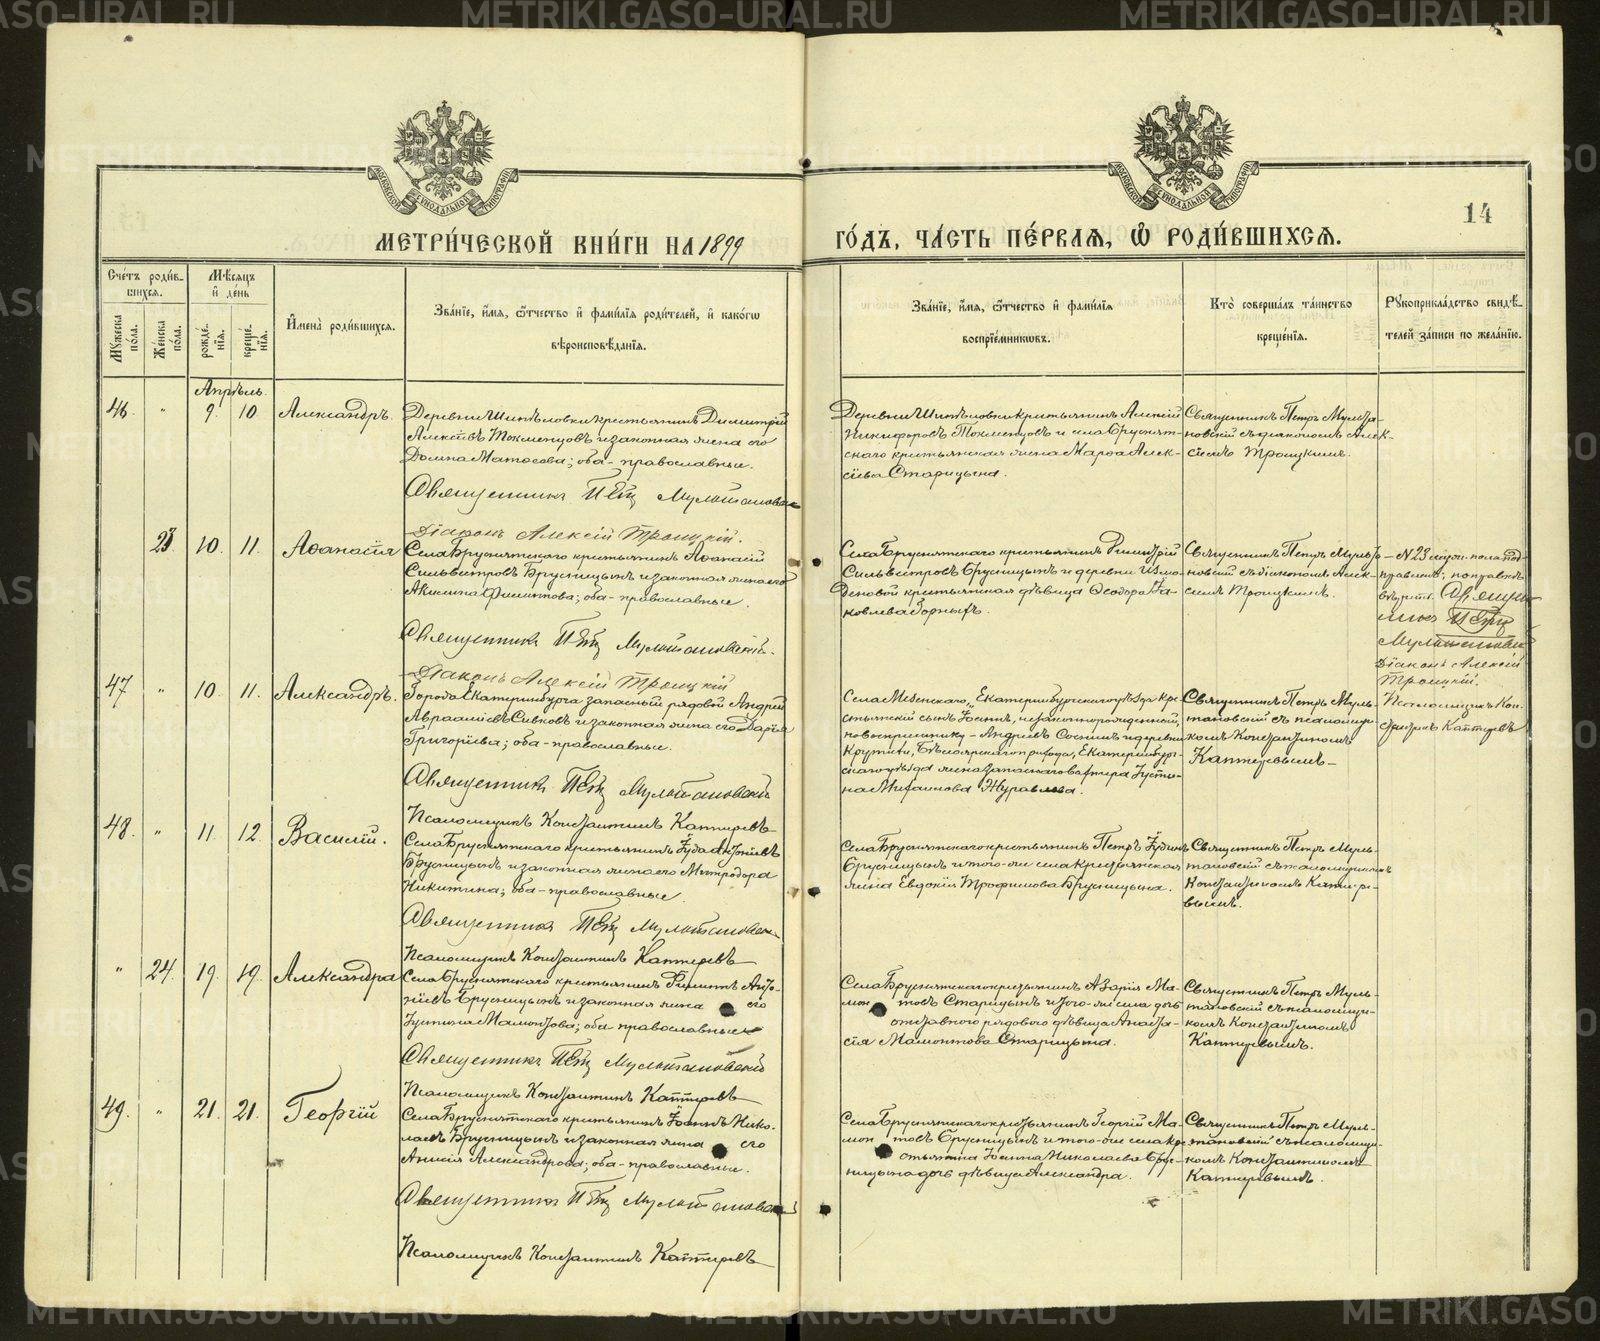 METRIKI.GASO-URAL.RU
14
МЕТРИ́ЧЕСКОЙ КНИ́ГИ НА 1899
ГО́ДЪ, ЧА́СТЬ ПЕ́РВАЯ, Ѿ РОДИ́ВШИХСЯ.
Сче́тъ роди́в-
шихся.
Му́жеска по́ла.
Же́нска по́ла.
Мѣ́сяцъ и҆ де́нь
рожде́нїя.
креще́нїя.
И҆мена̀ роди́вшихся.
Зва́нїе, и҆́мя, ѻ҆́тчество и҆ фами́лїя роди́телей, и҆ како́гѡ
вѣроисповѣ́данїя.
Зва́нїе, и҆́мя, ѻ҆́тчество и҆ фами́лїя
воспрїе́мникѡвъ.
Кто̀ соверша́лъ та́инство
креще́нїя.
Рꙋкоприкла́дство свидѣ́-
телей за́писи по жела́нїю.
Апрѣль
46. " 9. 10. Александръ.
крестьянинъ Димитрій
Алексѣевъ Токменцовъ и законная жена его
Домна Матѳеева; оба православные.
Священникъ Петръ Мультановскій
Діаконъ Алексій Троицкій.
крестьянинъ Алексій
Никифоровъ Токменцовъ и села Бруснят-
скаго крестьянская жена Марѳа Алек-
сѣева Старицына.
Священникъ Петръ Мульта-
новскій съ діакономъ Алек-
сіемъ Троицкимъ.
23. 10. 11. Аѳанасія
Села Бруснятскаго крестьянинъ Аѳанасій
Сильвестровъ Брусницынъ и законная жена его
Акилина Филиппова; оба православные.
Священникъ Петръ Мультановскій.
Діаконъ Алексій Троицкій
Села Бруснятскаго крестьянинъ Димитрій
Сильвестровъ Брусницынъ и деревни
крестьянская дѣвица Ѳеодора Яа-
ковлева Горныхъ.
Священникъ Петръ Мульта-
новскій съ діакономъ Алек-
сіемъ Троицкимъ.
№ 23
Священ-
никъ Петръ
Мультановскій
Діаконъ Алексій
Троицкій.
Псаломщикъ Кон-
стантинъ Каптеревъ
47 " 10. 11. Александръ.
Города Екатеринбурга запасный рядовой Андрей
Авраамiевъ Сивковъ и законная жена его Дарія
Григоріева; оба православные.
Священникъ Петръ Мультановскій
Псаломщикъ Константинъ Каптеревъ
Екатеринбургскаго уѣзда кре-
стьянскій сынъ Іоаннъ, незаконнорожденный,
по воспріемнику Андреевъ и деревни
Екатеринбург-
скаго уѣзда жена запаснаго Іусти-
на Журавлева.
Священникъ Петръ Муль-
тановскій съ псаломщи-
комъ Константиномъ
Каптеревымъ
48. " 11. 12. Василій.
Села Бруснятскаго крестьянинъ
Брусницынъ и законная жена его Митродора
Никитина; оба православные.
Священникъ Петръ Мультановскій
Псаломщикъ Константинъ Каптеревъ
Села Бруснятскаго крестьянинъ Петръ
Брусницынъ и того-же села крестьянская
жена Евдокія Трофимова Брусницына.
Священникъ Петръ Муль-
тановскій съ псаломщикомъ
Константиномъ Капте-ре-
вымъ.
" 24. 19. 19. Александра
Села Бруснятскаго крестьянинъ Филиппъ Анто-
ніевъ Брусницынъ и законная жена его
Іустина Мамонтова; оба православные
Священникъ Петръ Мультановскій
Псаломщикъ Константинъ Каптеревъ
Села Бруснятскаго крестьянинъ Азарія Ма-
монтовъ Старицынъ и того-же села дочь
отставного рядового дѣвица Анаста-
сія Мамонтова Старицына.
Священникъ Петръ Муль-
тановскій съ псаломщи-
комъ Константиномъ
Каптеревымъ.
49. " 21. 21. Георгій
Села Бруснятскаго крестьянинъ Іоаннъ Нико-
лаевъ Брусницынъ и законная жена его
Анисія Александрова; оба православные.
Священникъ Петръ Мультановскій
Псаломщикъ Константинъ Каптеревъ
Села Бруснятскаго крестьянинъ Георгій Ма-
монтовъ Брусницынъ и того-же села кре-
стьянина Іоанна Николаева Брус-
ницына дочь дѣвица Александра.
Священникъ Петръ Муль-
тановскій съ псаломщи-
комъ Константиномъ
Каптеревымъ.